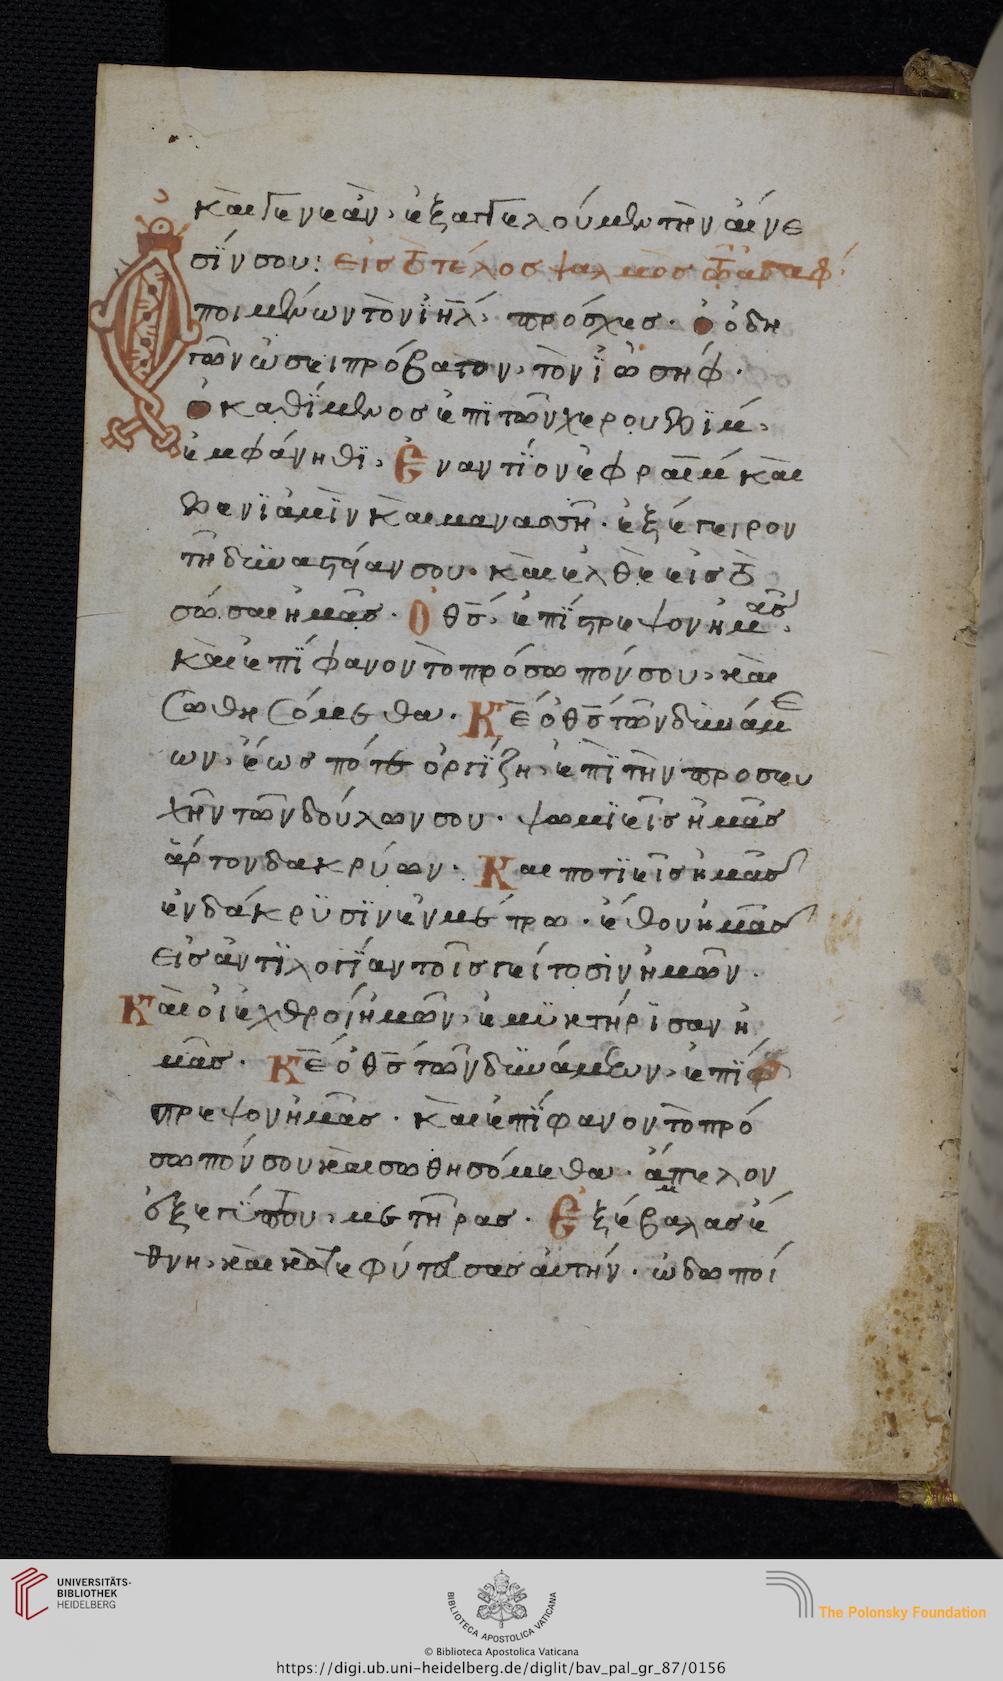 καὶ γενεὰν· ἐξαγγελοῦμεν τὴν αἴνε
σΐν σου: εἰς τὸ τέλος ψαλμὸς
ποιμένων τὸν ἰη̅λ· πρόσχες· ὁ ὁδη
γῶν ὡσεὶ πρόβατον· τὸν ἰωσήφ·
ὁ καθΐμενος ἐπὶ τῶν χερουβΐμ·
ἐμφάνηθι· Ἐναντίον ἐφραῒμ καὶ
βενϊαμῒν καὶ μανασσῆ· ἐξέγειρον
τὴν δυναστείαν σου· καὶ ἐλθὲ εἰς τὸ
σῶσαι ἡμᾶς· Ὁ θς̅ ἐπίστρεψον ἡμᾶς·
καὶ ἐπίφανον τὸ πρόσωπόν σου· καὶ
σωθησόμεθα· Κε̅ ὁ θς̅ τῶν δυνάμε
ων· ἕως πότε ὀργίζη· ἐπὶ τὴν προσευ
χὴν τῶν δούλων σου· ψωμιεῖς ἡμᾶς
ἄρτον δακρύων· Και ποτιεῖς ἡμᾶς
ἐν δάκρυσϊν ἐν μέτρω· ἔθου ἡμᾶς
εἰς ἀντιλογίαν τοῖς γείτοσϊν ἡμῶν·
Καὶ οἱ ἐχθροὶ ἡμῶν· ἐμυκτήρϊσαν ἡ
μᾶς· Κε̅ ὁ θς̅ τῶν δυνάμεων· ἐπίσ
τρεψον ἡμᾶς· καὶ ἐπίφανον τὸ πρό
σωπόν σου καὶ σωθησόμεθα· ἄμπελον
ἐξ εγύπτου· μετῆρας· Ἐξέβαλας ἔ
θνη· καὶ κατεφύτευσας αὐτήν· ὡδοποί
UNIVERSITÄTS-
BIBLIOTHEK
HEIDELBERG
BIBLIOTECA APOSTOLICA VATICANA
The Polonsky Foundation
© Biblioteca Apostolica Vaticana
https://digi.ub.uni-heidelberg.de/diglit/bav_pal_gr_87/0156